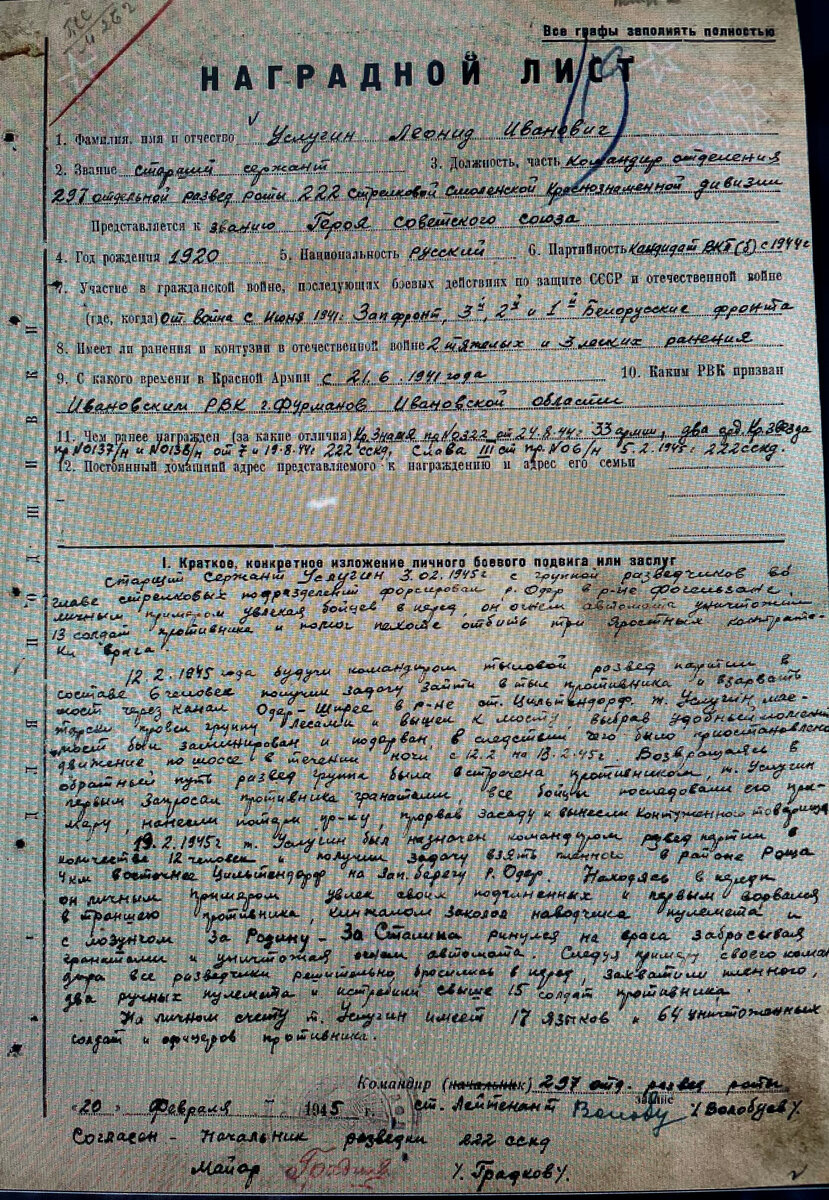 Все графы заполнять полностью
НАГРАДНОЙ ЛИСТ
1. Фамилия, имя и отчество Услугин Леонид Иванович
2. Звание старший сержант 3. Должность, часть командир отделения
297 отдельной развед роты 222 Стрелковой Смоленской Краснознаменной дивизии
Представляется к званию Героя Советского союза
4. Год рождения 1920 5. Национальность Русский 6. Партийность кандидат ВКП(б) с 1944 г
7. Участие в гражданской войне, последующих боевых действиях по защите СССР и отечественной войне
(где, когда) от. война с Июня 1941 г. Зап фронт, 3й, 2й и 1й Белорусские фронта
8. Имеет ли ранения и контузии в отечественной войне 2 тяжелых и 3 легких ранения
9. С какого времени в Красной Армии с 21.6 1941 года 10. Каким РВК призван
Ивановским РВК г. Фурманов Ивановской области
11. Чем ранее награжден (за какие отличия) Кр. Знамя пр No 322 от 24.8.44 г 33 армии, два орд. Кр. Звезда
пр. No 137/н и No 138/н от 7 и 19.8.44 г 222 сскд, Слава III ст пр. No 6/н 5.2.1945 г 222 сскд.
12. Постоянный домашний адрес представляемого к награждению и адрес его семьи
ДЛЯ ПОДШИВКИ
I. Краткое, конкретное изложение личного боевого подвига или заслуг
Старший Сержант Услугин 3.02.1945 г. с группой разведчиков во
главе стрелковых подразделений форсировал р. Одер в р-не Фогельзанг.
Личным примером увлекая бойцов в перед, он огнем автомата уничтожил
13 солдат противника и помог пехоте отбить три яростных контрата-
ки врага.
12.2.1945 года будучи командиром тыловой развед партии в
составе 6 человек получил задачу зайти в тыл противника и взорвать
мост через канал Одер-Шпрее в р-не ст. Цильтендорф. т. Услугин мас-
терски провел группу лесами и вышел к мосту, выбрав удобный момент
мост был заминирован и подорван, в следствии чего было приостановлено
движение по шоссе в течении ночи с 12.2 на 13.2.45 г. Возвращаясь в
обратный путь развед группа была встречена противником, т. Услугин
первым забросал противника гранатами, все бойцы последовали его при-
меру, нанесли потери пр-ку, прорвав засаду и вынесли контуженного товарища
19.2.1945 г т. Услугин был назначен командиром развед партии в
количестве 12 человек и получил задачу взять пленного в районе Роща
4 км восточнее Цильтендорф на зап. берегу р. Одер. Находясь в переди
он личным примером увлек своих подчиненных и первым ворвался
в траншею противника, кинжалом заколов наводчика пулемета и
с лозунгом За Родину – За Сталина ринулся на врага забрасывая
гранатами и уничтожая огнем автомата. Следуя примеру своего коман
дира все разведчики решительно бросились в перед, захватили пленного,
два ручных пулемета и истребили свыше 15 солдат противника.
На личном счету т. Услугин имеет 17 языков и 64 уничтоженных
солдат и офицеров противника.
Командир (начальник) 297 отд. развед роты
звание
«20» Февраля 1945 г. ст. Лейтенант /Волобуев/
Согласен – Начальник разведки 222 сскд
Майор /Градков/.